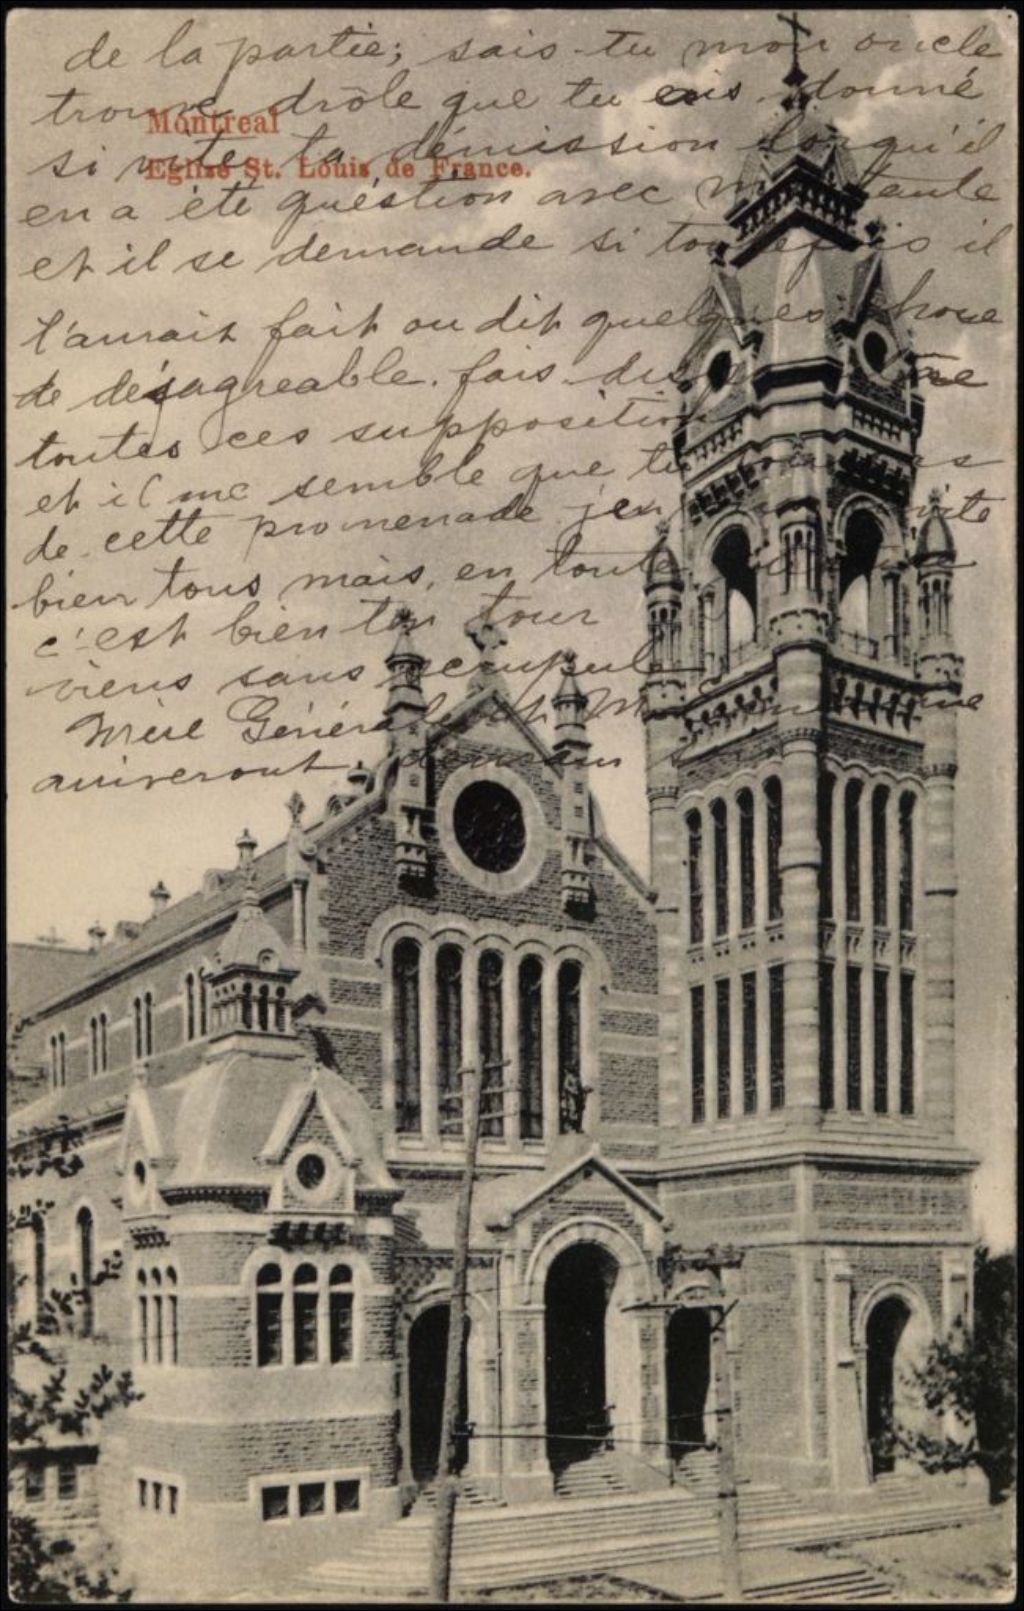 de la partie; sais-tu mon oncle
trouve drôle que tu aies donné
Montreal
si vite ta démission lorsqu'il
Eglise St. Louis de France.
en a été question avec ma tante
et il se demande si toutefois il
t'aurait fait ou dit quelques chose
de désagreable. fais
toutes ces supposition
et il me semble que tu
de cette promenade
bien tous mais, en toute
c'est bien ton tour
viens sans scrupule
Mère Générale et
arriveront demain